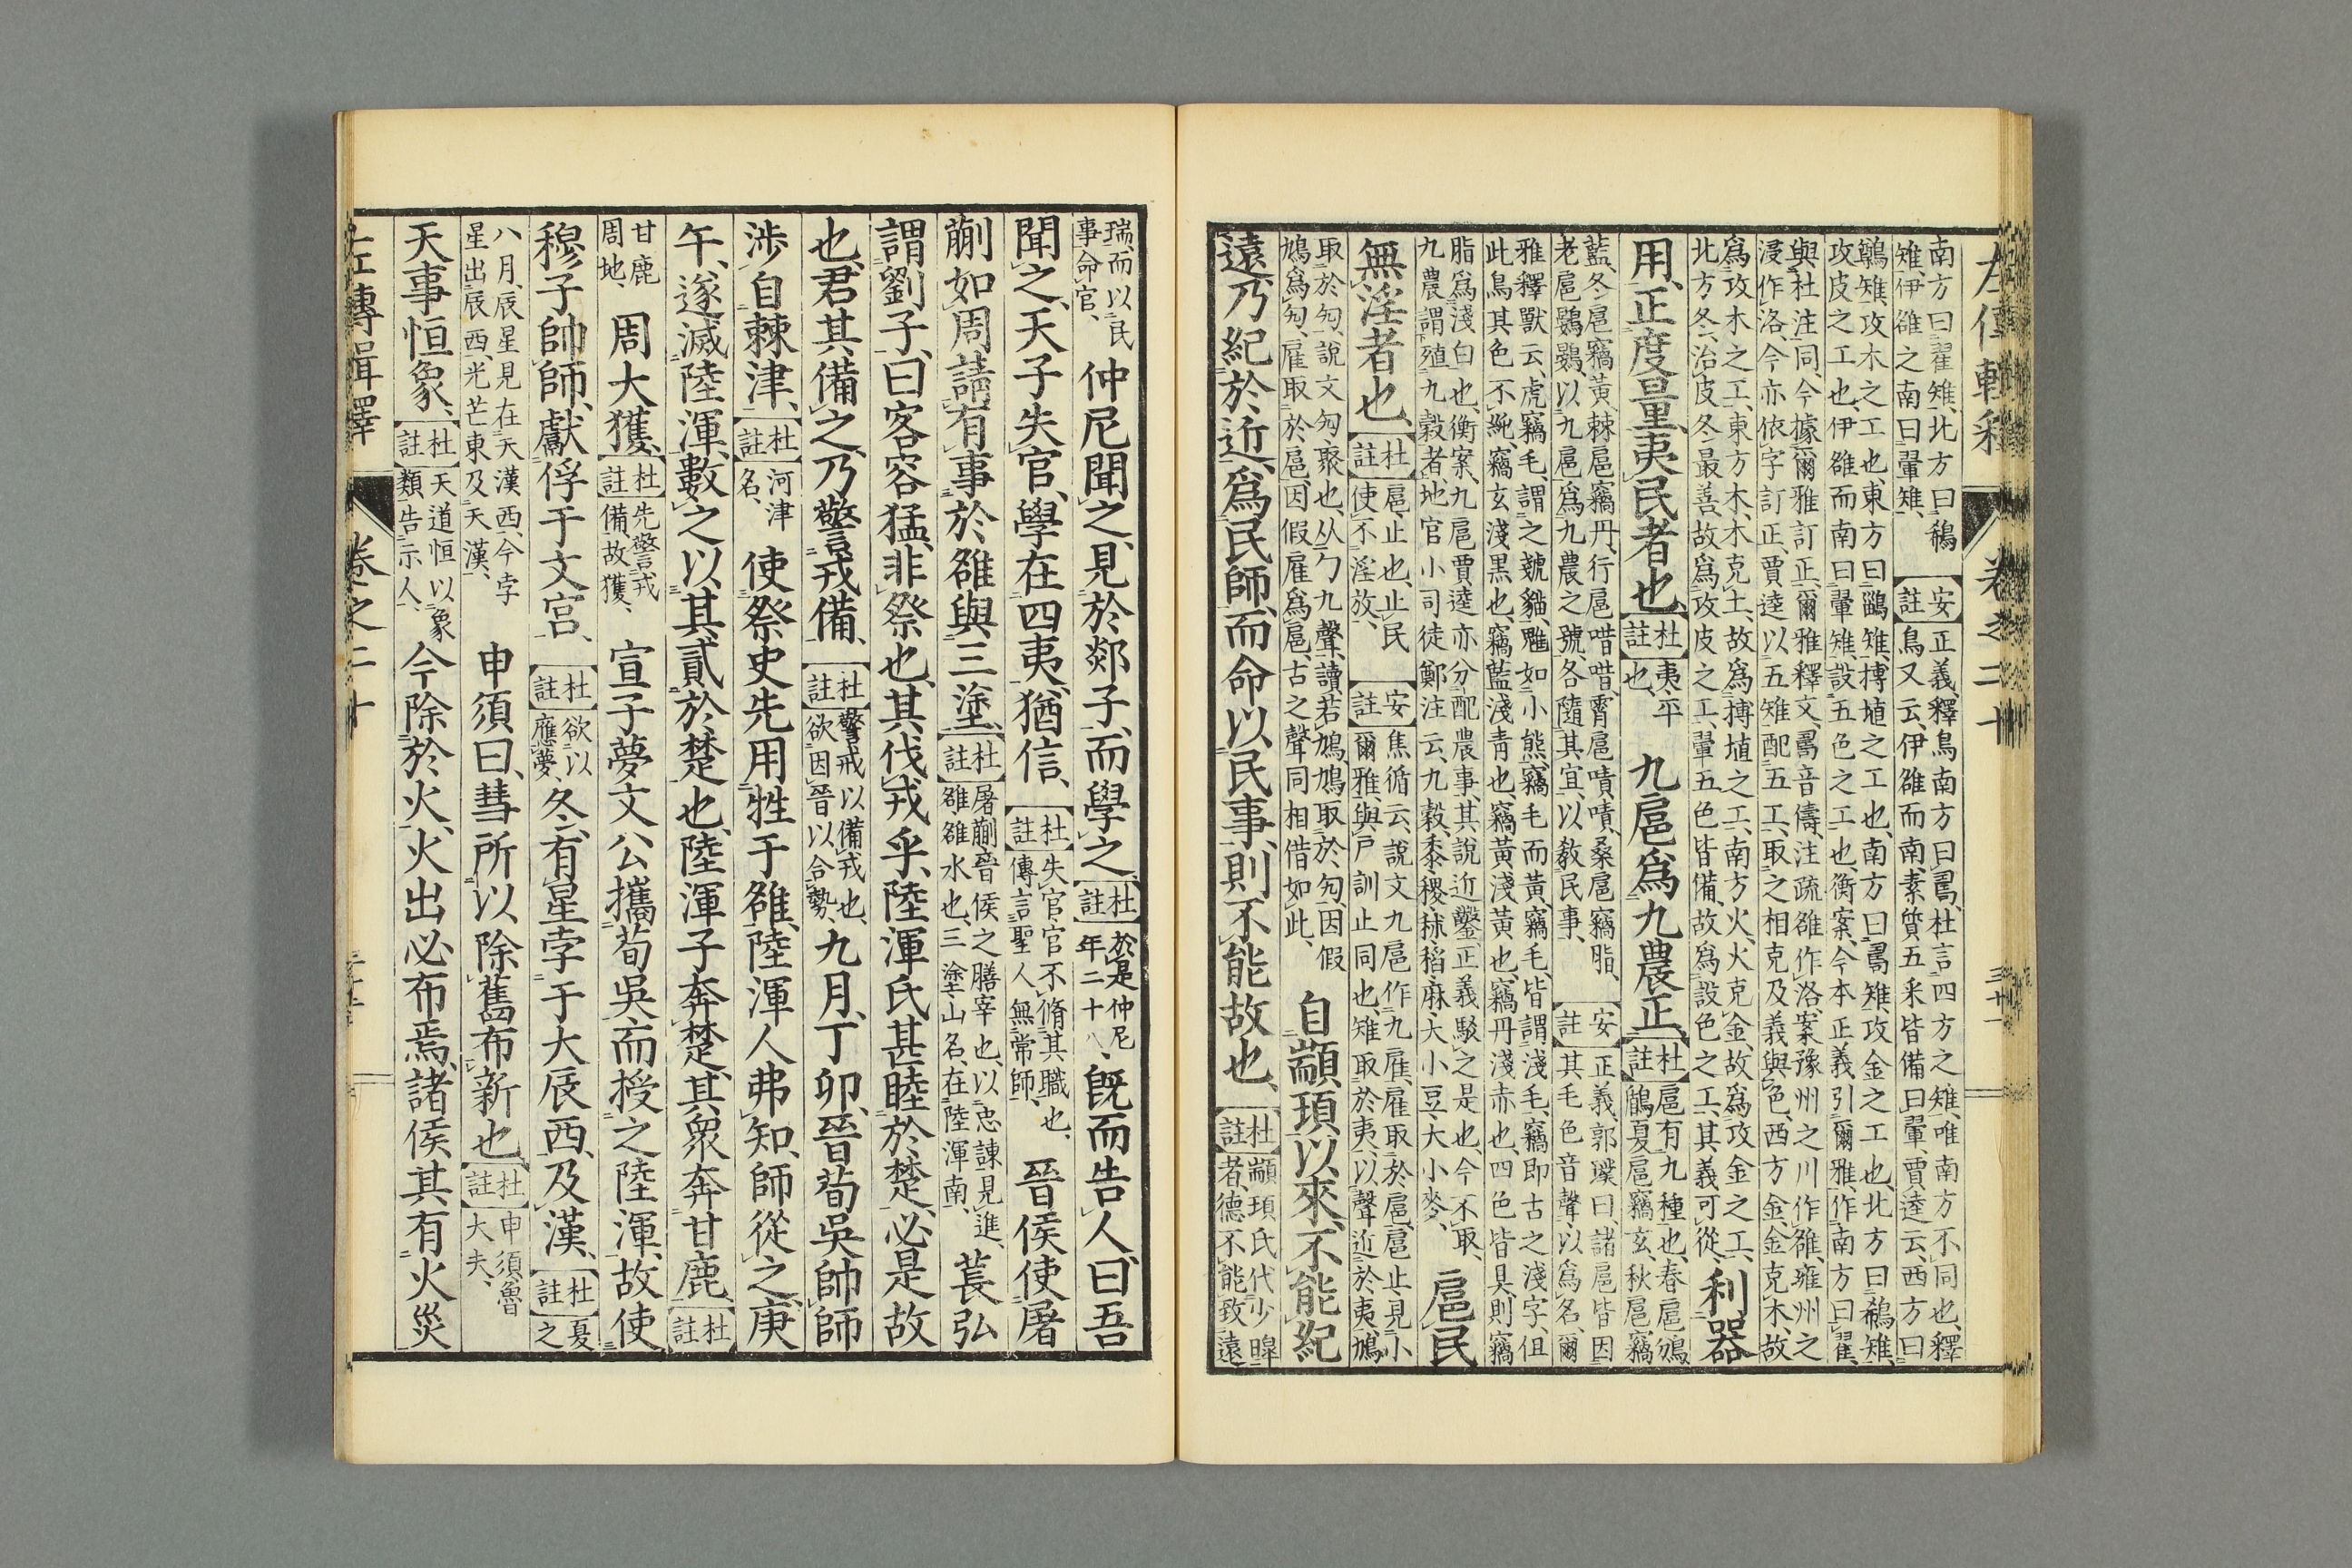 左傳輯釋 卷之二十 三十一
南方曰翟雉、北方曰鵗
雉、伊雒之南曰翬雉、
安註
正義、釋鳥南方曰𠷎、杜言四方之雉、唯南方不同也、釋
鳥又云、伊雒而南、素質、五采皆備曰翬、賈逵云、西方曰
鷷雉、攻木之工也、東方曰鶅雉、摶埴之工也、南方曰𠷎雉、攻金之工也、北方曰鵗雉、
攻皮之工也、伊雒而南曰翬雉、設五色之工也、衡案、今本正義、引爾雅、作南方曰翟、
與杜注同、今據爾雅訂正、爾雅釋文、𠷎音儔、注疏雒作洛、案豫州之川作雒、雍州之
浸作洛、今亦依字訂正、賈逵以五雉配五工、取之相克及義與色、西方金、金克木、故
爲攻木之工、東方木、木克土、故爲摶埴之工、南方火、火克金、故爲攻金之工、
北方冬、治皮冬最善、故爲攻皮之工、翬五色皆備、故爲設色之工、其義可從、
利器
用、正度量、夷民者也、
杜註
夷、平
也、
九扈爲九農正、
杜註
扈有九種也、春扈鳻
鶞、夏扈竊玄、秋扈竊
藍、冬扈竊黃、棘扈竊丹、行扈唶唶、宵扈嘖嘖、桑扈竊脂、
老扈鷃鷃、以九扈爲九農之號、各隨其宜、以敎民事、
安註
正義、郭璞曰、諸扈皆因
其毛色音聲、以爲名、爾
雅釋獸云、虎竊毛、謂之虦貓、魋如小熊、竊毛而黃、竊毛、皆謂淺毛、竊即古之淺字、但
此鳥其色不純、竊玄淺黑也、竊藍淺靑也、竊黃淺黃也、竊丹淺赤也、四色皆具、則竊
脂爲淺白也、衡案、九扈賈逵亦分配農事、其說近鑿、正義駁之是也、今不取、
九農謂殖九穀者、地官小司徒鄭注云、九穀、黍稷秫稻麻大小豆大小麥、
扈民
無淫者也、
杜註
扈、止也、止民
使不淫放、
安註
焦循云、說文九扈作九雇、雇取於扈、扈止見小
爾雅、與戶訓止同也、雉取於夷、以聲近於夷、鳩
取於勼、說文勼、聚也、从勹九聲、讀若鳩、鳩取於勼、因假
鳩爲勼、雇取於扈、因假雇爲扈、古之聲同相借如此、
自顓頊以來、不能紀
遠、乃紀於近、爲民師、而命以民事、則不能故也、
杜註
顓頊氏代少皞
者、德不能致遠
瑞、而以民
事命官、
仲尼聞之、見於郯子、而學之、
杜註
於是仲尼
年二十八、
既而告人曰、吾
聞之、天子失官、學在四夷、猶信、
杜註
失官、官不脩其職也、
傳言聖人無常師、
晉侯使屠
蒯如周、請有事於雒與三塗、
杜註
屠蒯晉侯之膳宰也、以忠諫見進、
雒雒水也、三塗、山名、在陸渾南、
萇弘
謂劉子曰、客容猛、非祭也、其伐戎乎、陸渾氏甚睦於楚、必是故
也、君其備之、乃警戎備、
杜註
警戒以備戎也、
欲因晉以合勢、
九月、丁卯、晉荀吳帥師
涉自棘津、
杜註
河津
名、
使祭史先用牲于雒、陸渾人弗知、師從之、庚
午、遂滅陸渾、數之以其貳於楚也、陸渾子奔楚、其衆奔甘鹿、
杜註
甘鹿
周地、
周大獲、
杜註
先警戎
備、故獲、
宣子夢文公攜荀吳而授之陸渾、故使
穆子帥師、獻俘于文宮、
杜註
欲以
應夢、
冬、有星孛于大辰西、及漢、
杜註
夏
之
八月、辰星見在天漢西、今孛
星出辰西、光芒東及天漢、
申須曰、彗所以除舊布新也、
杜註
申須魯
大夫、
天事恒象、
杜註
天道恒以象
類告示人、
今除於火、火出必布焉、諸侯其有火災
左傳輯釋 卷之二十